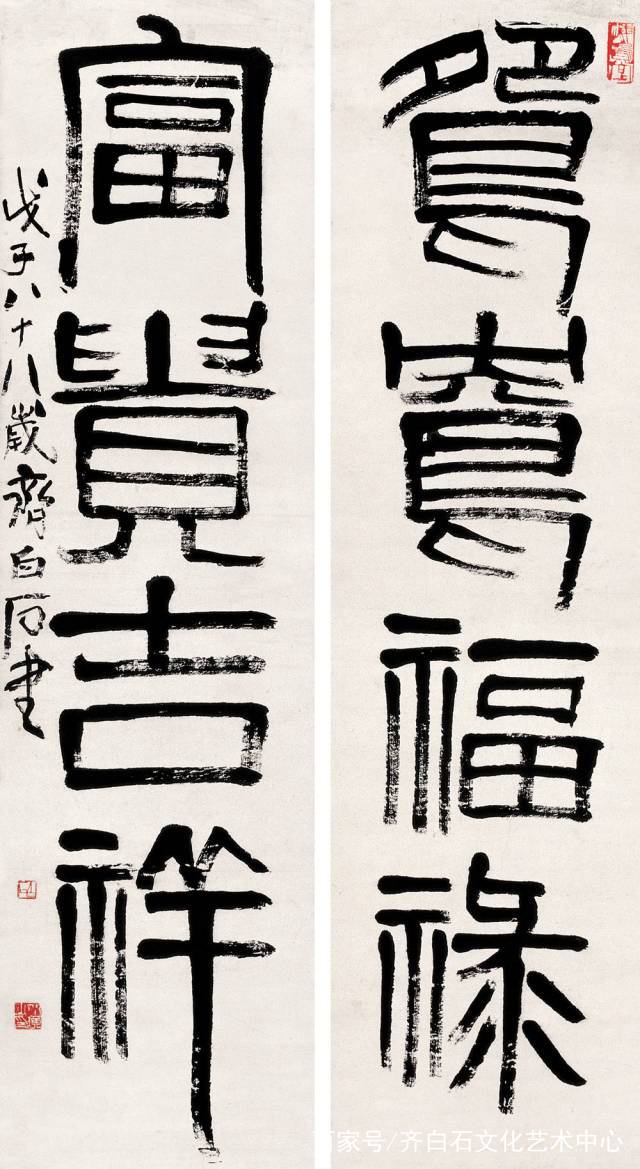 鴛鴦福祿
富貴吉祥
戊子八十八歲齊白石書
百家号/齐白石文化艺术中心